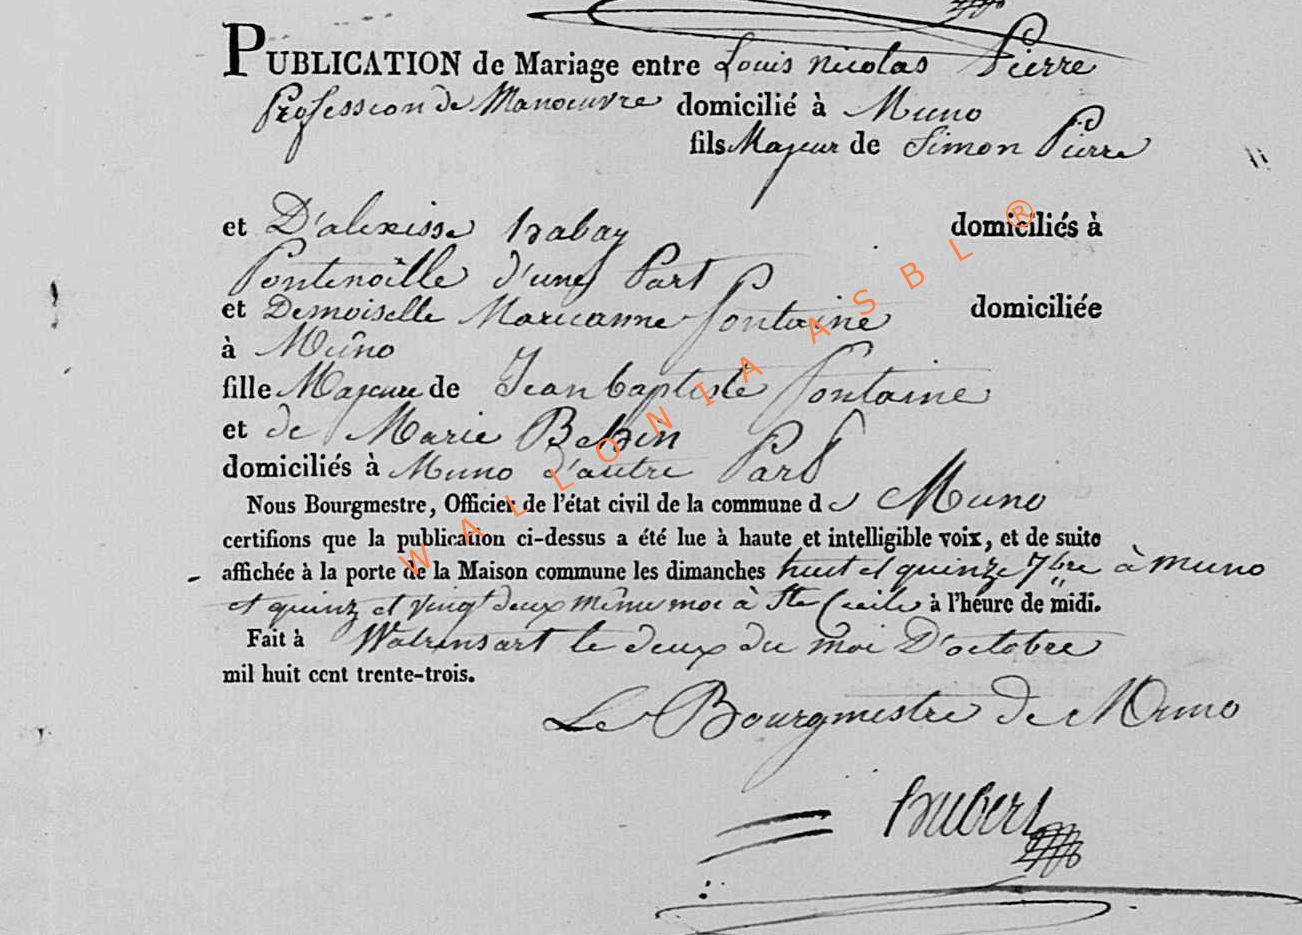 PUBLICATION de Mariage entre Louis nicolas Pierre
Profession de Manoeuvre domicilié à Muno
fils Majeur de Simon Pierre
et D'alexisse habay domiciliés à
Pontenoille d'une Part
et Demoiselle Marieanne fontaine domiciliée
à Muno
fille Majeure de Jean baptiste fontaine
et de Marie
domiciliés à Muno d'autre Part
Nous Bourgmestre, Officier de l'état civil de la commune de Muno
certifions que la publication ci-dessus a été lue à haute et intelligible voix, et de suite
affichée à la porte de la Maison commune les dimanches huit et quinze 7bre à muno
et quinz et vingt deux même moi à Ste Cecile à l'heure de midi.
Fait à Watrinsart le deux du moi D'octobre
mil huit cent trente-trois.
Le Bourgmestre De Muno
hubert
WALLONIA ASBL ®